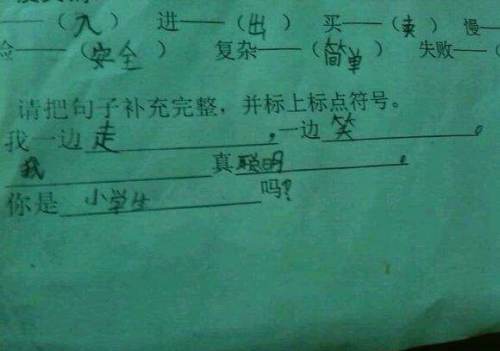 ——（入） 进——（出） 买——（卖） 慢——
险——（安全） 复杂——（简单） 失败——（
请把句子补充完整，并标上标点符号。
我一边走，一边笑。
我真聪明。
你是小学生吗？